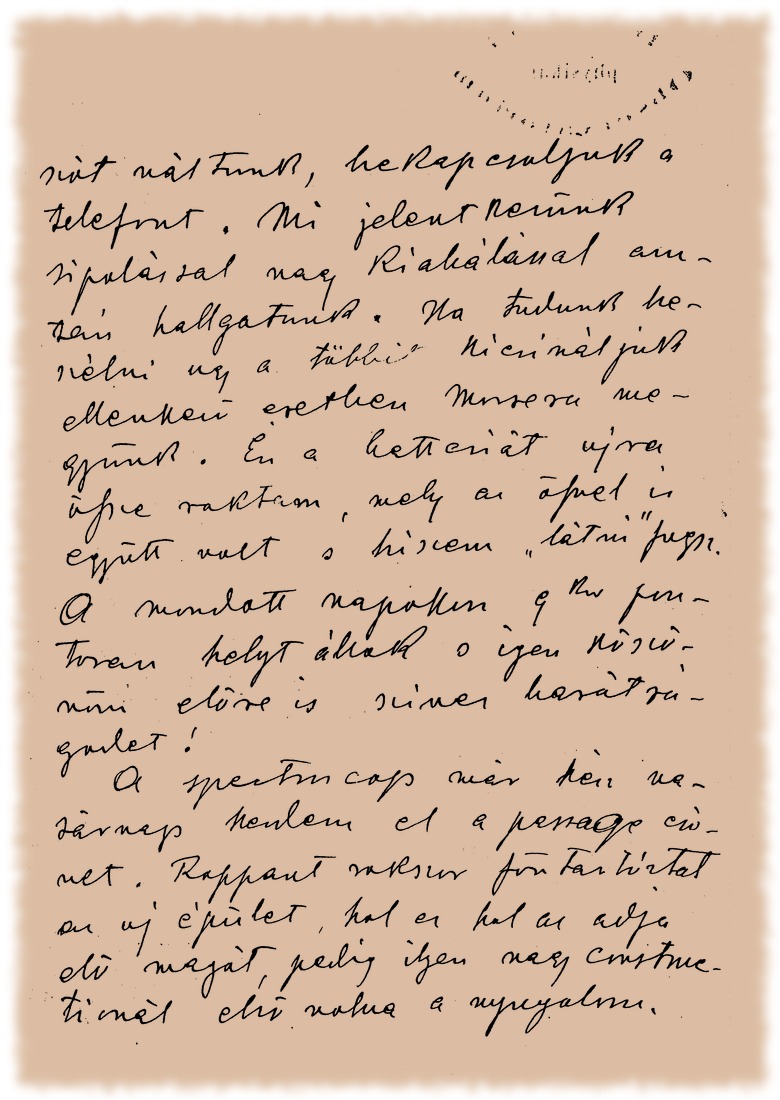 szót váltunk, bekapcsoljuk a
telefont. Mi jelentkezünk
sipolással vagy kiabálással az-
tán hallgatunk. Ha tudunk be-
szélni ugy a többit kicsináljuk
ellenkező esetben Morsera me-
gyünk. Én a batteriát ujra
össze raktam, mely az őszel is
együtt volt s hiszem „látni" fogsz.
A mondott napokon 9 kor pon-
tosan helyt állok s igen köszö-
nöm előre is szives barátsá-
godat!
A spectroscop már kész va-
sárnap kezdem el a passage cső-
vet. Roppant sokszor föntartóztat
az uj épület, hol ez hol az adja
elő magát, pedig ilyen nagy construc-
tionál első volna a nyugalom.